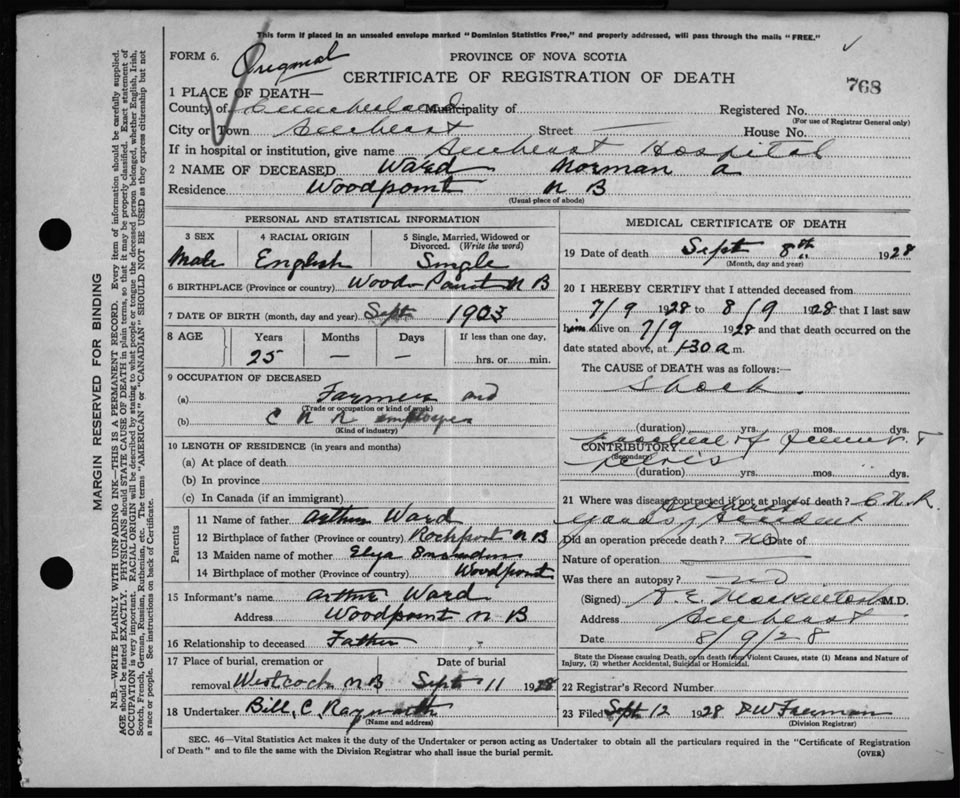 This form if placed in an unsealed envelope marked "Dominion Statistics Free," and properly addressed, will pass through the mails "FREE."
FORM 6. Original PROVINCE OF NOVA SCOTIA
CERTIFICATE OF REGISTRATION OF DEATH
768
1 PLACE OF DEATH—
County of Cumberland Municipality of Registered No.
(For use of Registrar General only)
City or Town Amherst Street — House No.
If in hospital or institution, give name Amherst Hospital
2 NAME OF DECEASED Ward Norman A
Residence Woodpoint N B
(Usual place of abode)
PERSONAL AND STATISTICAL INFORMATION
3 SEX 4 RACIAL ORIGIN 5 Single, Married, Widowed or Divorced. (Write the word)
Male English Single
6 BIRTHPLACE (Province or country) Wood Point N B
7 DATE OF BIRTH (month, day and year) Sept 1903
8 AGE Years Months Days If less than one day,
25 — — hrs. or min.
9 OCCUPATION OF DECEASED
(a) Farmer and
(Trade or occupation or kind of work)
(b) C N R employee
(Kind of industry)
10 LENGTH OF RESIDENCE (in years and months)
(a) At place of death
(b) In province
(c) In Canada (if an immigrant)
Parents
11 Name of father Arthur Ward
12 Birthplace of father (Province or country) Rockport N B
13 Maiden name of mother Eliza
14 Birthplace of mother (Province or country) Woodpoint
15 Informant's name Arthur Ward
Address Woodpoint N B
16 Relationship to deceased Father
17 Place of burial, cremation or Date of burial
removal Westcock N B Sept 11 1928
18 Undertaker Bill, C, Rayworth
(Name and address)
MEDICAL CERTIFICATE OF DEATH
19 Date of death Sept 8th 1928
(Month, day and year)
20 I HEREBY CERTIFY that I attended deceased from
7/9 1928 to 8/9 1928 that I last saw
him alive on 7/9 1928 and that death occurred on
date stated above, at 1.30 a m.
The CAUSE of DEATH was as follows:—
Shock
(duration) yrs. mos. dys.
CONTRIBUTORY fracture of femur &
(Secondary) pelvis
(duration) yrs. mos. dys.
21 Where was disease contracted if not at place of death? C.N.R.
Amherst
Yards, Accident
Did an operation precede death? No Date of
Nature of operation —
Was there an autopsy? no
(Signed) M.D.
Address Amherst
Date 8/9/28
State the Disease causing Death, or in death from Violent Causes, state (1) Means and Nature of
Injury, (2) whether Accidental, Suicidal or Homicidal.
22 Registrar's Record Number
23 Filed Sept 12 1928 D W Freeman
(Division Registrar)
SEC. 46—Vital Statistics Act makes it the duty of the Undertaker or person acting as Undertaker to obtain all the particulars required in the "Certificate of Registration
of Death" and to file the same with the Division Registrar who shall issue the burial permit. (OVER)
MARGIN RESERVED FOR BINDING
N.B.—WRITE PLAINLY WITH UNFADING INK—THIS IS A PERMANENT RECORD. Every item of information should be carefully supplied.
AGE should be stated EXACTLY. PHYSICIANS should STATE CAUSE OF DEATH in plain terms, so that it may be properly classified. Exact statement of
OCCUPATION is very important. RACIAL ORIGIN will be described by stating to what people or tongue the deceased person belonged, whether English, Irish,
Scotch, French, German, Russian, Ruthenian, etc. The terms "AMERICAN" or "CANADIAN" SHOULD NOT BE USED as they express citizenship but not
a race or people. See instructions on back of Certificate.